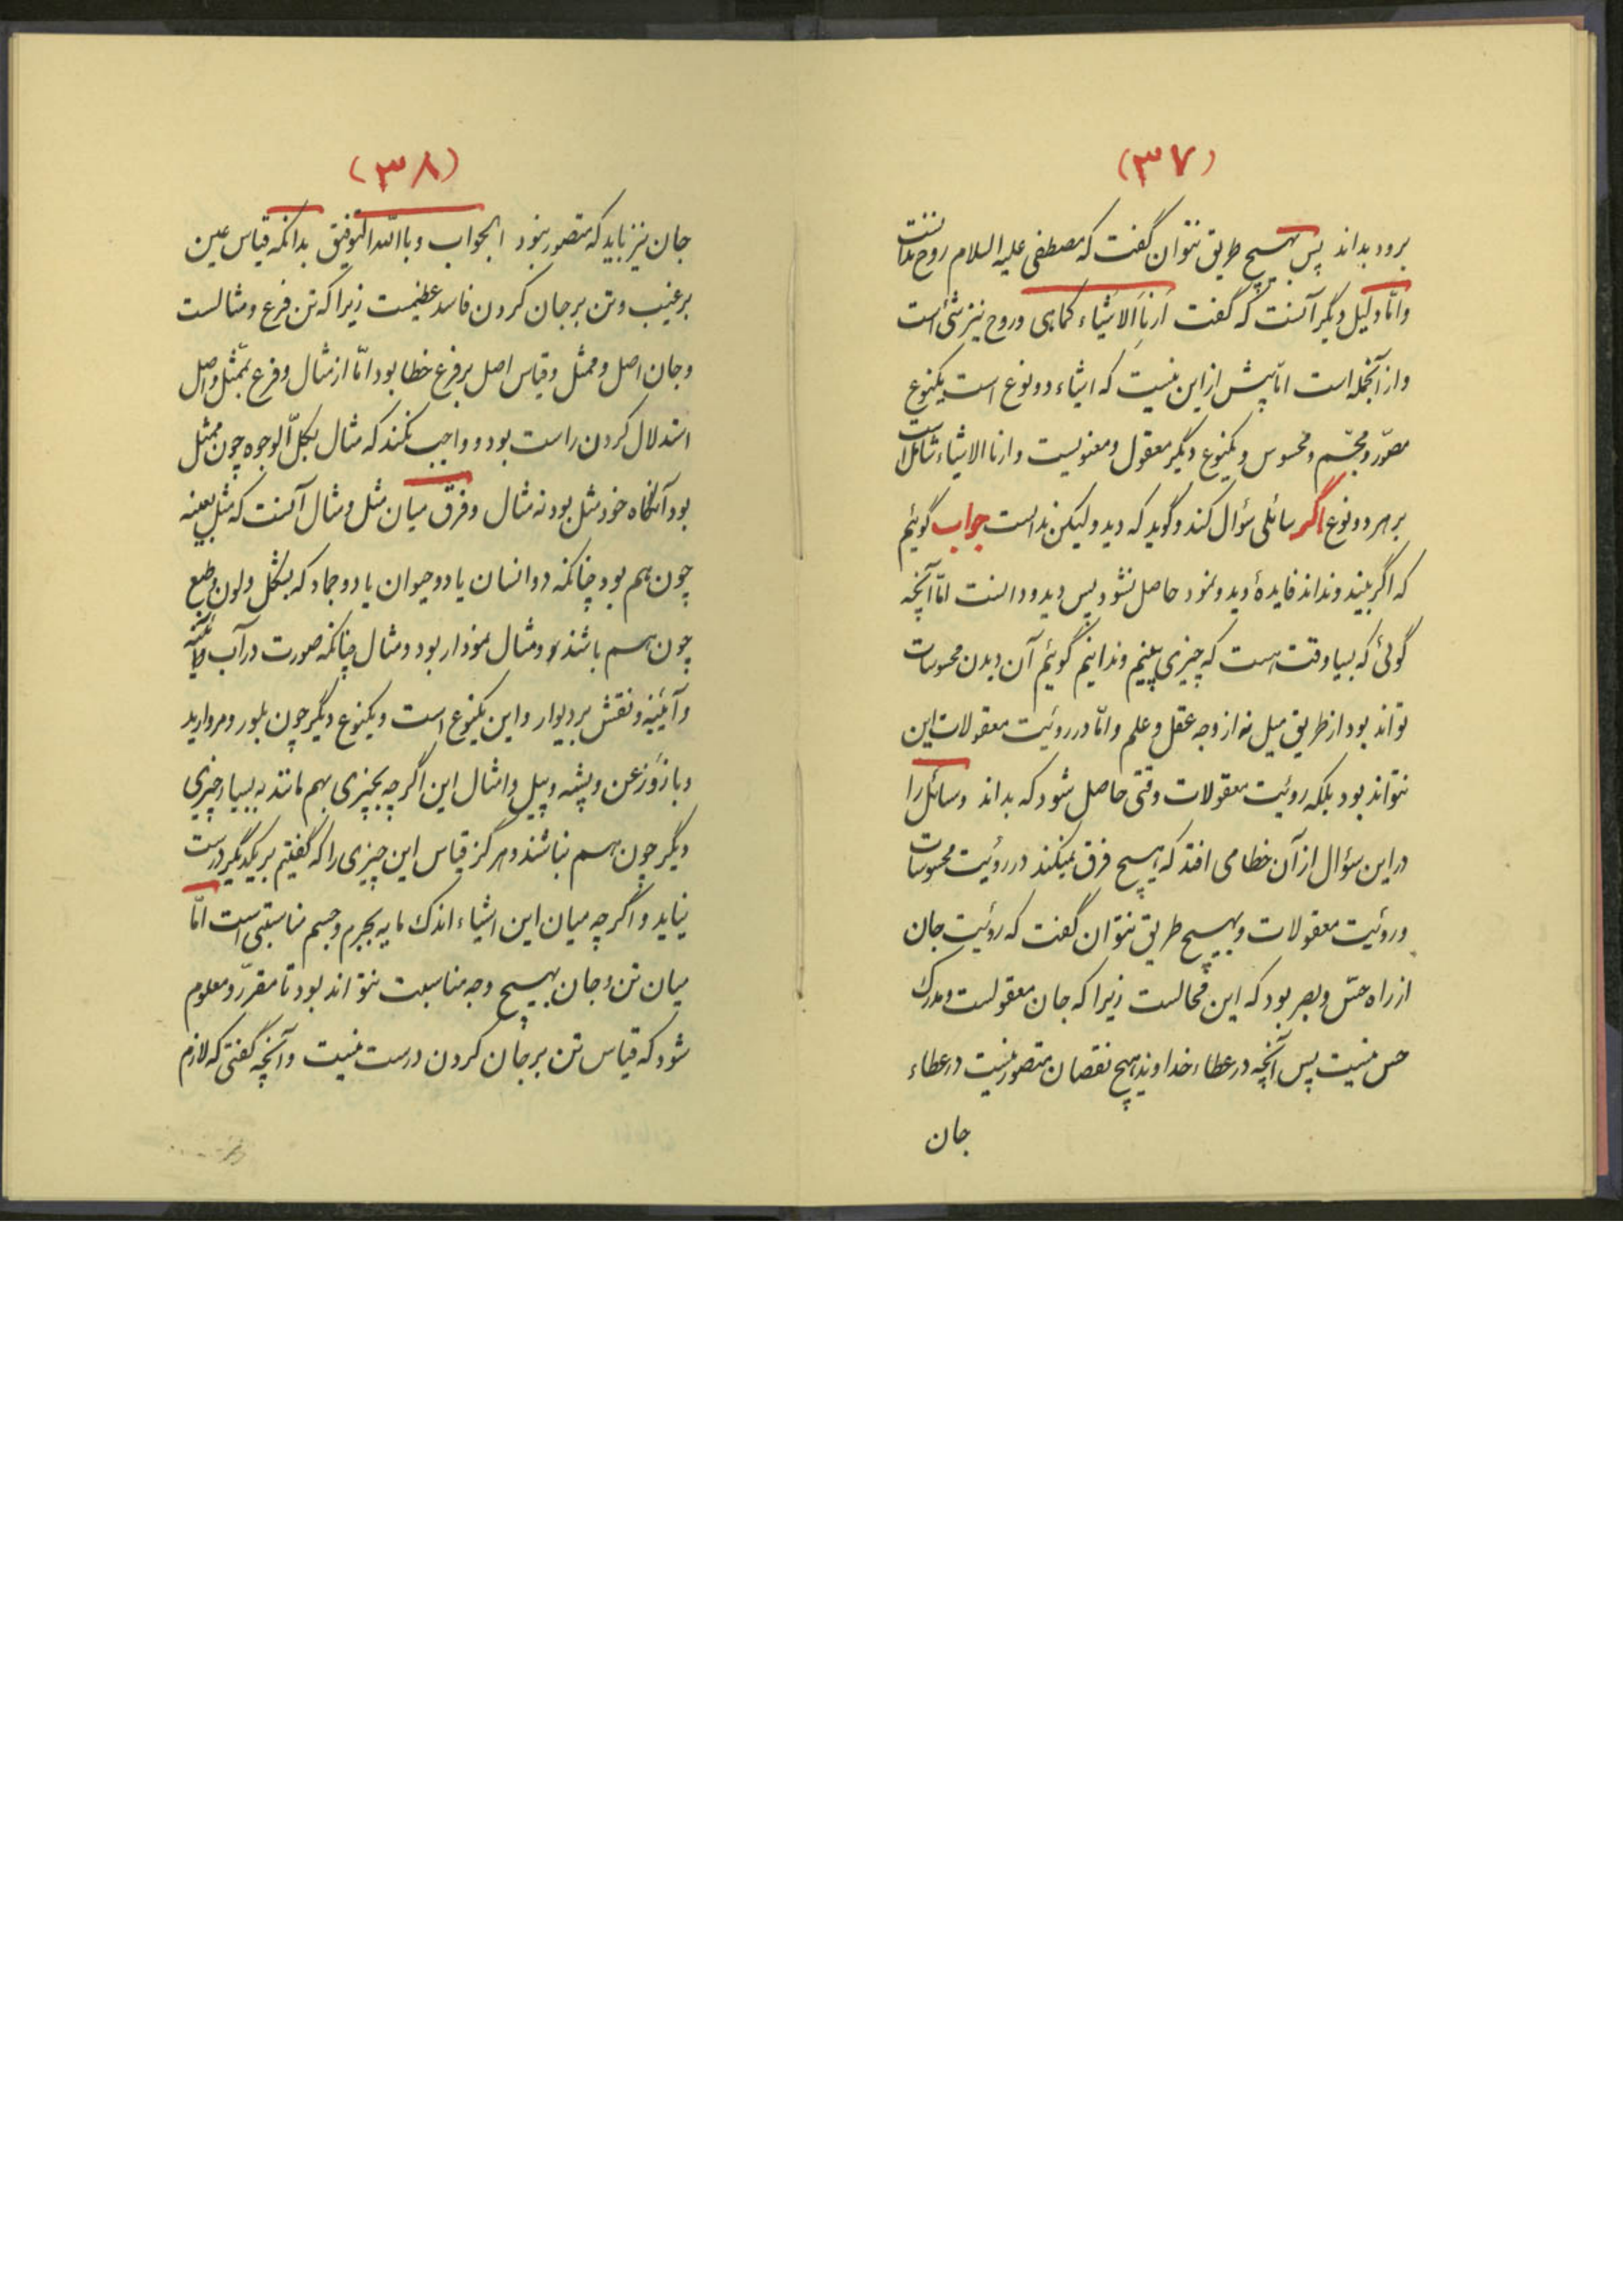 (۳۷)
برود بداند پس بهیچ طریق نتوان گفت که مصطفی علیه السلام روح ندانست
واما دلیل دیگر آنست که گفت اَرِنَا الاَشیاء کماهی وروح نیز شئ است
واز آنجمله است امّا پیش از این نیست که اشیاء دو نوع است یکنوع
مصوّر ومجسّم ومحسوس ویکنوع دیگر معقول ومعنویست وارنا الاشیاء شاملست
بر هر دو نوع اگر سائلی سؤال کند وگوید که دید ولیکن ندانست جواب گوئیم
که اگر بیند ونداند فایدهٔ دید ونمود حاصل نشود پس دید ودانست امّا آنچه
گوئی که بسیار وقت هست که چیزی بینیم وندانیم گوئیم آن دیدن محسوسات
تواند بود از طریق میل نه از وجه عقل وعلم وامّا در رویت معقولات این
نتواند بود بلکه روئیت معقولات وقتی حاصل شود که بداند وسائل را
در این سؤال از آن خطا می افتد که هیچ فرق نمیکند در روئیت محسوسات
وروئیت معقولات وبهیچ طریق نتوان گفت که روئیت جان
از راه حسّ وبصر بود که این محالست زیرا که جان معقولست ومدرک
حس نیست پس آنچه در عطاء خداوند هیچ نقصان متصور نیست در عطاء
جان
(۳۸)
جان نیز باید که متصور نبود الجواب وباللّه التوفیق بدانکه قیاس عین
بر غیب وتن بر جان کردن فاسد عظیمست زیرا که تن فرع ومثالست
وجان اصل وممثل وقیاس اصل بر فرع خطا بود امّا از مثال وفرع بممّثل واصل
استدلال کردن راست بود و واجب نکند که مثال بکلّ الوجوه چون ممثل
بود آنگاه خود مثل بود نه مثال وفرق میان مثل ومثال آنست که مثل بعینه
چون هم بود چنانکه دو انسان یا دو حیوان یا دو جماد که بشکل ولون وطبع
چون هم باشند ومثال نمودار بود ومثال چنانکه صورت در آب
وآئینه ونقش بر دیوار واین یکنوع است ویکنوع دیگر چون بلور ومروارید
وباز وزغن وپشه وپیل وامثال این اگر چه بچیزی بهم مانند به بسیار چیزی
دیگر چون هم نباشند وهرگز قیاس این چیزی را که گفتیم بر یکدیگر درست
نیاید واگر چه میان این اشیاء اندک مایه بجرم وجسم مناسبتی است امّا
میان تن وجان بهیچ وجه مناسبت نتواند بود تا مقرّر ومعلوم
شود که قیاس تن بر جان کردن درست نیست وآنچه گفتی که لازم